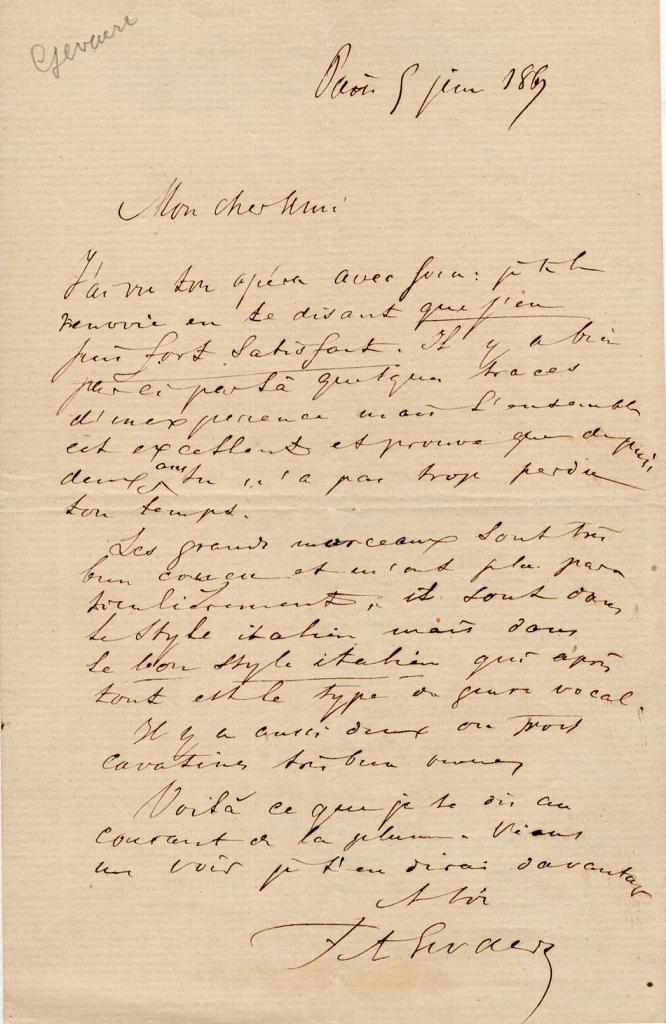 Gevaert
Paris 5 juin 1867
Mon cher
J'ai vu ton opéra avec soin: je te le
renvoie en te disant que j'en
suis fort satisfait. Il y a bien
par ci par là quelques traces
d'inexpérience mais l'ensemble
est excellent et prouve que depuis
deux ans tu n'a pas trop perdu
ton temps.
Les grands morceaux sont très
bien conçu et m'ont plu par
ticulièrement, il sont dans
le style italien mais dans
le bon style italien qui après
tout est le type du genre vocal.
Il y a aussi deux ou trois
cavatines très bien venues
Voilà ce que je te dis au
courant de la plume. Viens
me voir je t'en dirai davantage
A toi
F A Gevaert